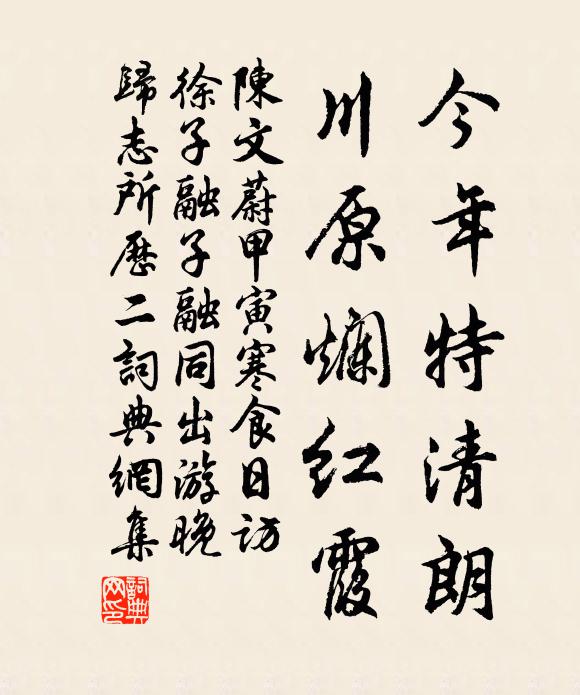 今年特清朗
川原爛紅霞
陳文蔚甲寅寒食日訪
徐子融子融同出游晚
歸志所歷二詞典網集
詞典網印